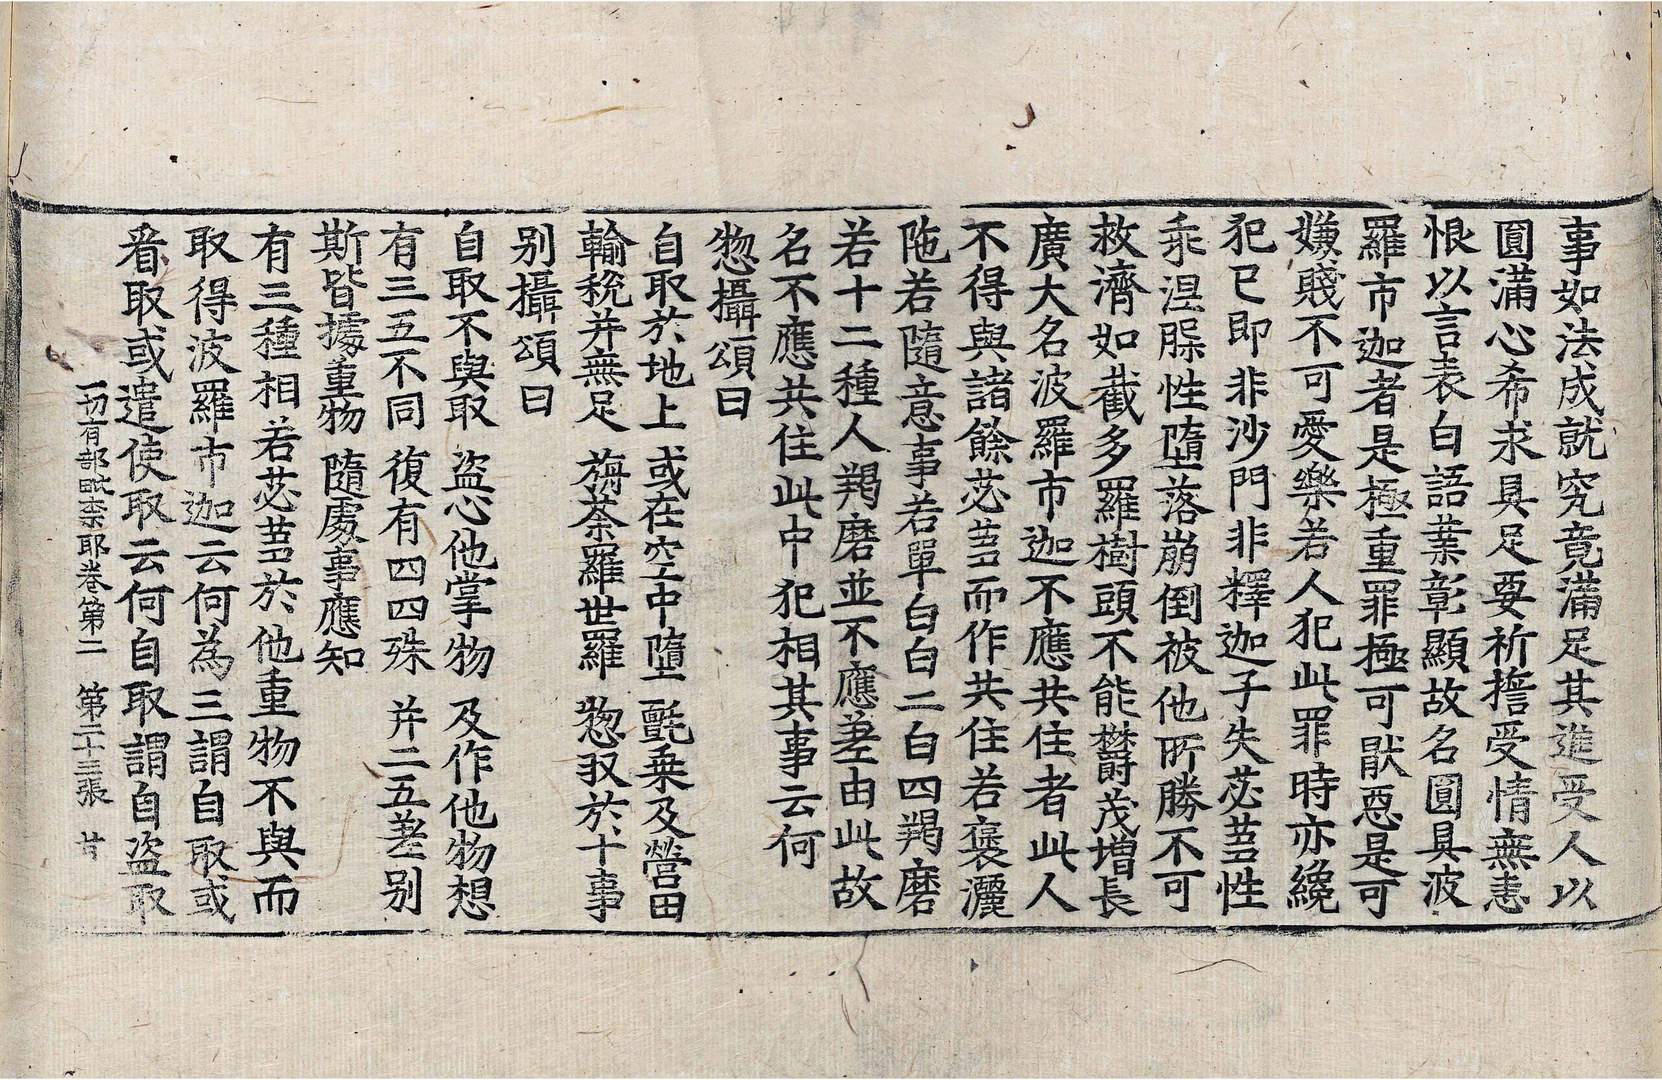 事如法成就究竟滿足其進受人以
圓滿心希求具足要祈擔受情無恚
恨以言表白語業彰顯故名圓具波
羅市迦者是極重罪極可猒惡是可
嫌賤不可愛樂若人犯此罪時亦纔
犯已即非沙門非釋迦子失苾芻性
乖涅槃性墮落崩倒被他所勝不可
救濟如截多羅樹頭不能鬱茂增長
廣大名波羅市迦不應共住者此人
不得與諸餘苾芻而作共住若褒灑
陁若隨意事若單白白二白四羯磨
若十二種人羯磨並不應差由此故
名不應共住此中犯相其事云何
惣攝頌曰
自取於地上 或在空中墮 氈乗及營田
輸稅并無足 旃荼羅世羅 惣収於十事
别攝頌曰
自取不與取 盜心他掌物 及作他物想
有三五不同 復有四四殊 并二五差别
斯皆據重物 隨處事應知
有三種相若苾芻於他重物不與而
取得波羅市迦云何為三謂自取或
看取或遣使取云何自取謂自盜取
一切有部毗柰耶卷第二 第二十三張 甘